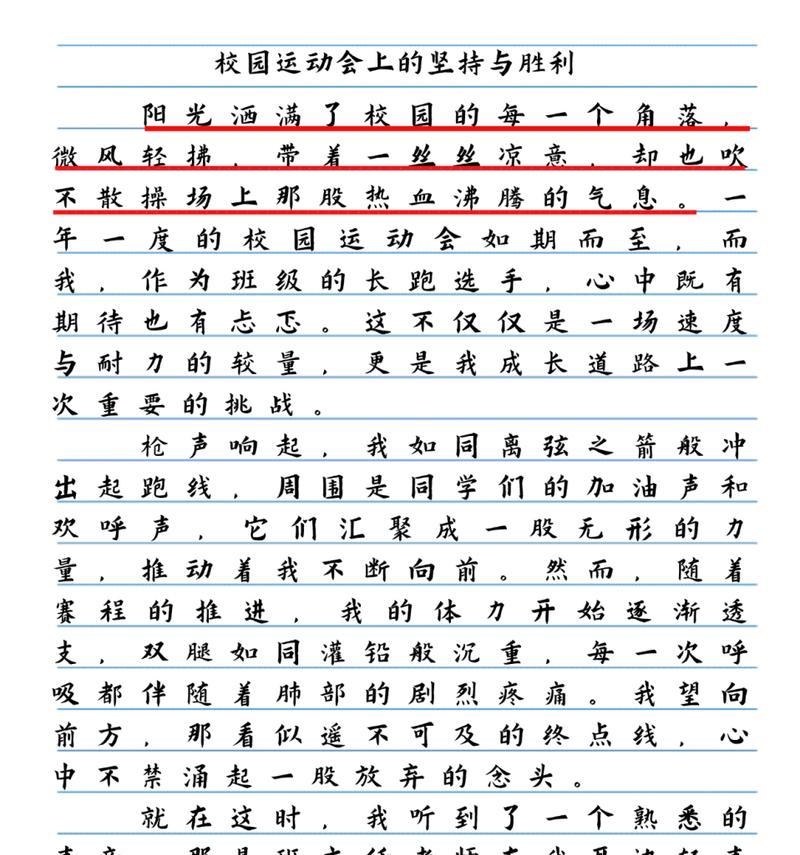 校园运动会上的坚持与胜利
阳光洒满了校园的每一个角落，
微风轻拂，带着一丝丝凉意，却也吹
不散操场上那股热血沸腾的气息。一
年一度的校园运动会如期而至，而
我，作为班级的长跑选手，心中既有
期待也有忐忑。这不仅仅是一场速度
与耐力的较量，更是我成长道路上一
次重要的挑战。
枪声响起，我如同离弦之箭般冲
出起跑线，周围是同学们的加油声和
欢呼声，它们汇聚成一股无形的力
量，推动着我不断向前。然而，随着
赛程的推进，我的体力开始逐渐透
支，双腿如同灌铅般沉重，每一次呼
吸都伴随着肺部的剧烈疼痛。我望向
前方，那看似遥不可及的终点线，心
中不禁涌起一股放弃的念头。
就在这时，我听到了一个熟悉的